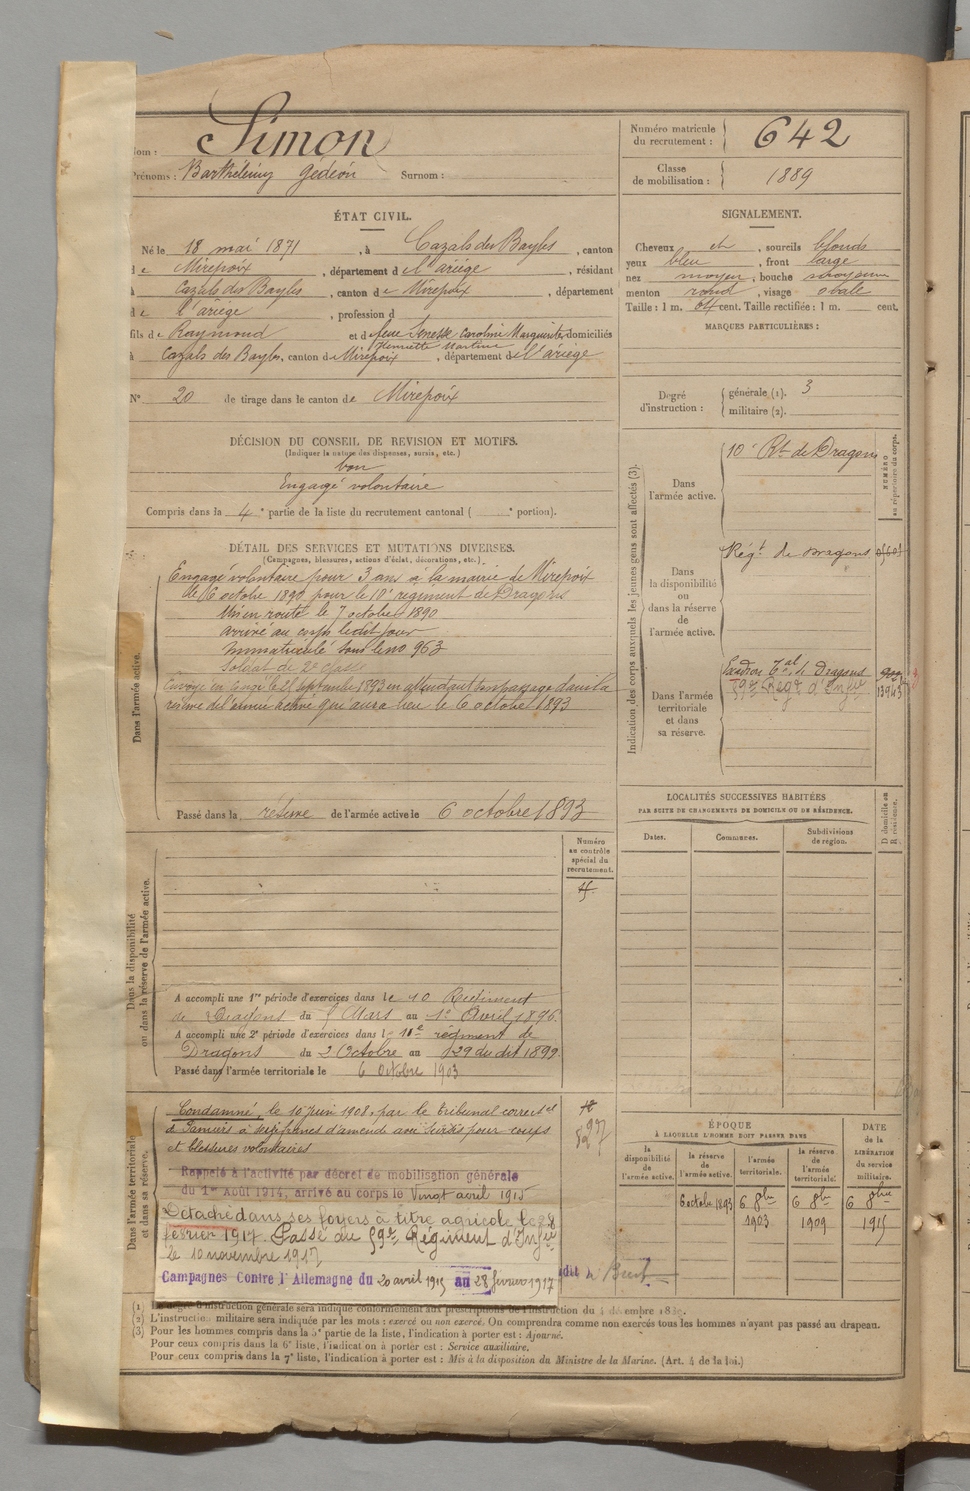 Nom : Simon
Prénoms : Barthélémy Gédéon Surnom :
Numéro matricule du recrutement : 642
Classe de mobilisation : 1889
ÉTAT CIVIL.
Né le 18 mai 1871, à Cazals des Bayles, canton
de Mirepoix, département de l'ariège, résidant
à Cazals des Bayles, canton de Mirepoix, département
de l'ariège, profession d
fils de Raymond et de feue Senesse Caroline Marguerite, domiciliés
Henriette Martine
à Cazals des Bayles, canton de Mirepoix, département de l'ariège
N° 20 de tirage dans le canton de Mirepoix
SIGNALEMENT.
Cheveux et, sourcils blonds
yeux bleu, front large
nez moyen, bouche moyenne
menton rond, visage ovale
Taille : 1 m. 64 cent. Taille rectifiée : 1 m. cent.
MARQUES PARTICULIÈRES :
Degré d'instruction : générale (1). 3
militaire (2).
DÉCISION DU CONSEIL DE REVISION ET MOTIFS.
(Indiquer la nature des dispenses, sursis, etc.)
bon
Engagé volontaire
Compris dans la 4e partie de la liste du recrutement cantonal ( e portion).
DÉTAIL DES SERVICES ET MUTATIONS DIVERSES.
(Campagnes, blessures, actions d'éclat, décorations, etc.)
Dans l'armée active.
Engagé volontaire pour 3 ans à la mairie de Mirepoix
le 6 octobre 1890 pour le 10e régiment de Dragons
Mis en route le 7 octobre 1890
arrivé au corps ledit jour
Immatriculé sous le no 963
Soldat de 2e classe
Envoyé en congé le 25 septembre 1893 en attendant son passage dans la
réserve de l'armée active qui aura lieu le 6 octobre 1893
Passé dans la réserve de l'armée active le 6 octobre 1893
Indication des corps auxquels les jeunes gens sont affectés (3).
NUMÉRO au répertoire du corps.
Dans l'armée active.
10e Rt de Dragons
Dans la disponibilité ou dans la réserve de l'armée active.
Régt de Dragons
Dans l'armée territoriale et dans sa réserve.
Escadron Tal de Dragons
59e Régt d'Infie
13943
LOCALITÉS SUCCESSIVES HABITÉES
PAR SUITE DE CHANGEMENTS DE DOMICILE OU DE RÉSIDENCE.
Dates. Communes. Subdivisions de région. D domicile ou R résidence.
Dans la disponibilité ou dans la réserve de l'armée active.
Numéro au contrôle spécial du recrutement.
A accompli une 1re période d'exercices dans le 10 Régiment
de Dragons du 5 Mars au 1er Avril 1896.
A accompli une 2e période d'exercices dans le 10e régiment de
Dragons du 2 Octobre au 29 du dit 1899.
Passé dans l'armée territoriale le 6 Octobre 1903
Dans l'armée territoriale et dans sa réserve.
Condamné, le 10 juin 1908, par le tribunal correctel
de Pamiers à six francs d'amende avec sursis pour coups
et blessures volontaires
Rappelé à l'activité par décret de mobilisation générale
du 1er Août 1914, arrivé au corps le Vingt avril 1915
Détaché dans ses foyers à titre agricole le 28
février 1917. Passé au 59e Régiment d'Infie
le 10 novembre 1917
Campagnes Contre l'Allemagne du 20 avril 1915 au 28 février 1917
ÉPOQUE
À LAQUELLE L'HOMME DOIT PASSER DANS
la disponibilité de l'armée active. la réserve de l'armée active. l'armée territoriale. la réserve de l'armée territoriale. DATE de la LIBÉRATION du service militaire.
6 octobre 1893 6 8bre 1903 6 8bre 1909 6 8bre 1915
(1) Le degré d'instruction générale sera indiqué conformément aux prescriptions de l'instruction du 4 décembre
(2) L'instruction militaire sera indiquée par les mots : exercé ou non exercé. On comprendra comme non exercés tous les hommes n'ayant pas passé au drapeau.
(3) Pour les hommes compris dans la 5e partie de la liste, l'indication à porter est : Ajourné.
Pour ceux compris dans la 6e liste, l'indication à porter est : Service auxiliaire.
Pour ceux compris dans la 7e liste, l'indication à porter est : Mis à la disposition du Ministre de la Marine. (Art. 4 de la loi.)